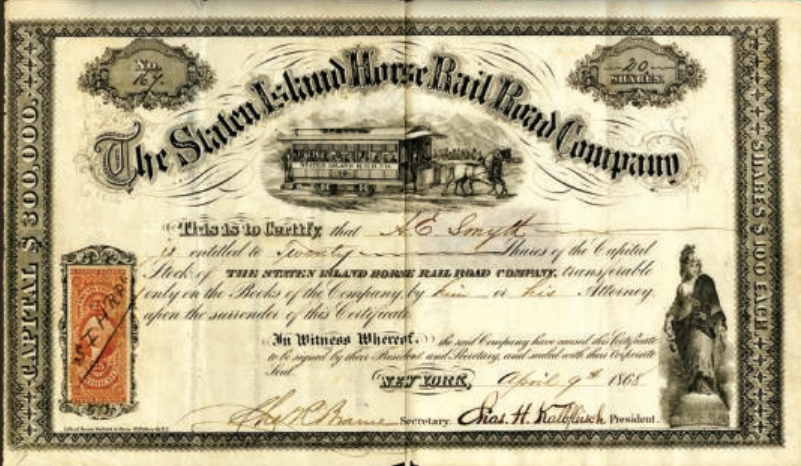 No.
167.
20
SHARES.
The Staten Island Horse Rail Road Company
STATEN ISLAND H.R.R. CO.
CAPITAL $300,000.
SHARES $100 EACH
This is to Certify, that A. E. Smyth
is entitled to Twenty Shares of the Capital
Stock of THE STATEN ISLAND HORSE RAIL ROAD COMPANY, transferable
only on the Books of the Company, by him or his Attorney
upon the surrender of this Certificate.
In Witness Whereof, the said Company have caused this Certificate
to be signed by their President and Secretary, and sealed with their Corporate
Seal
NEW YORK, April 9th 1868
Secretary. Chas. H. Kalbfleisch President.
S.I.H.R.R.